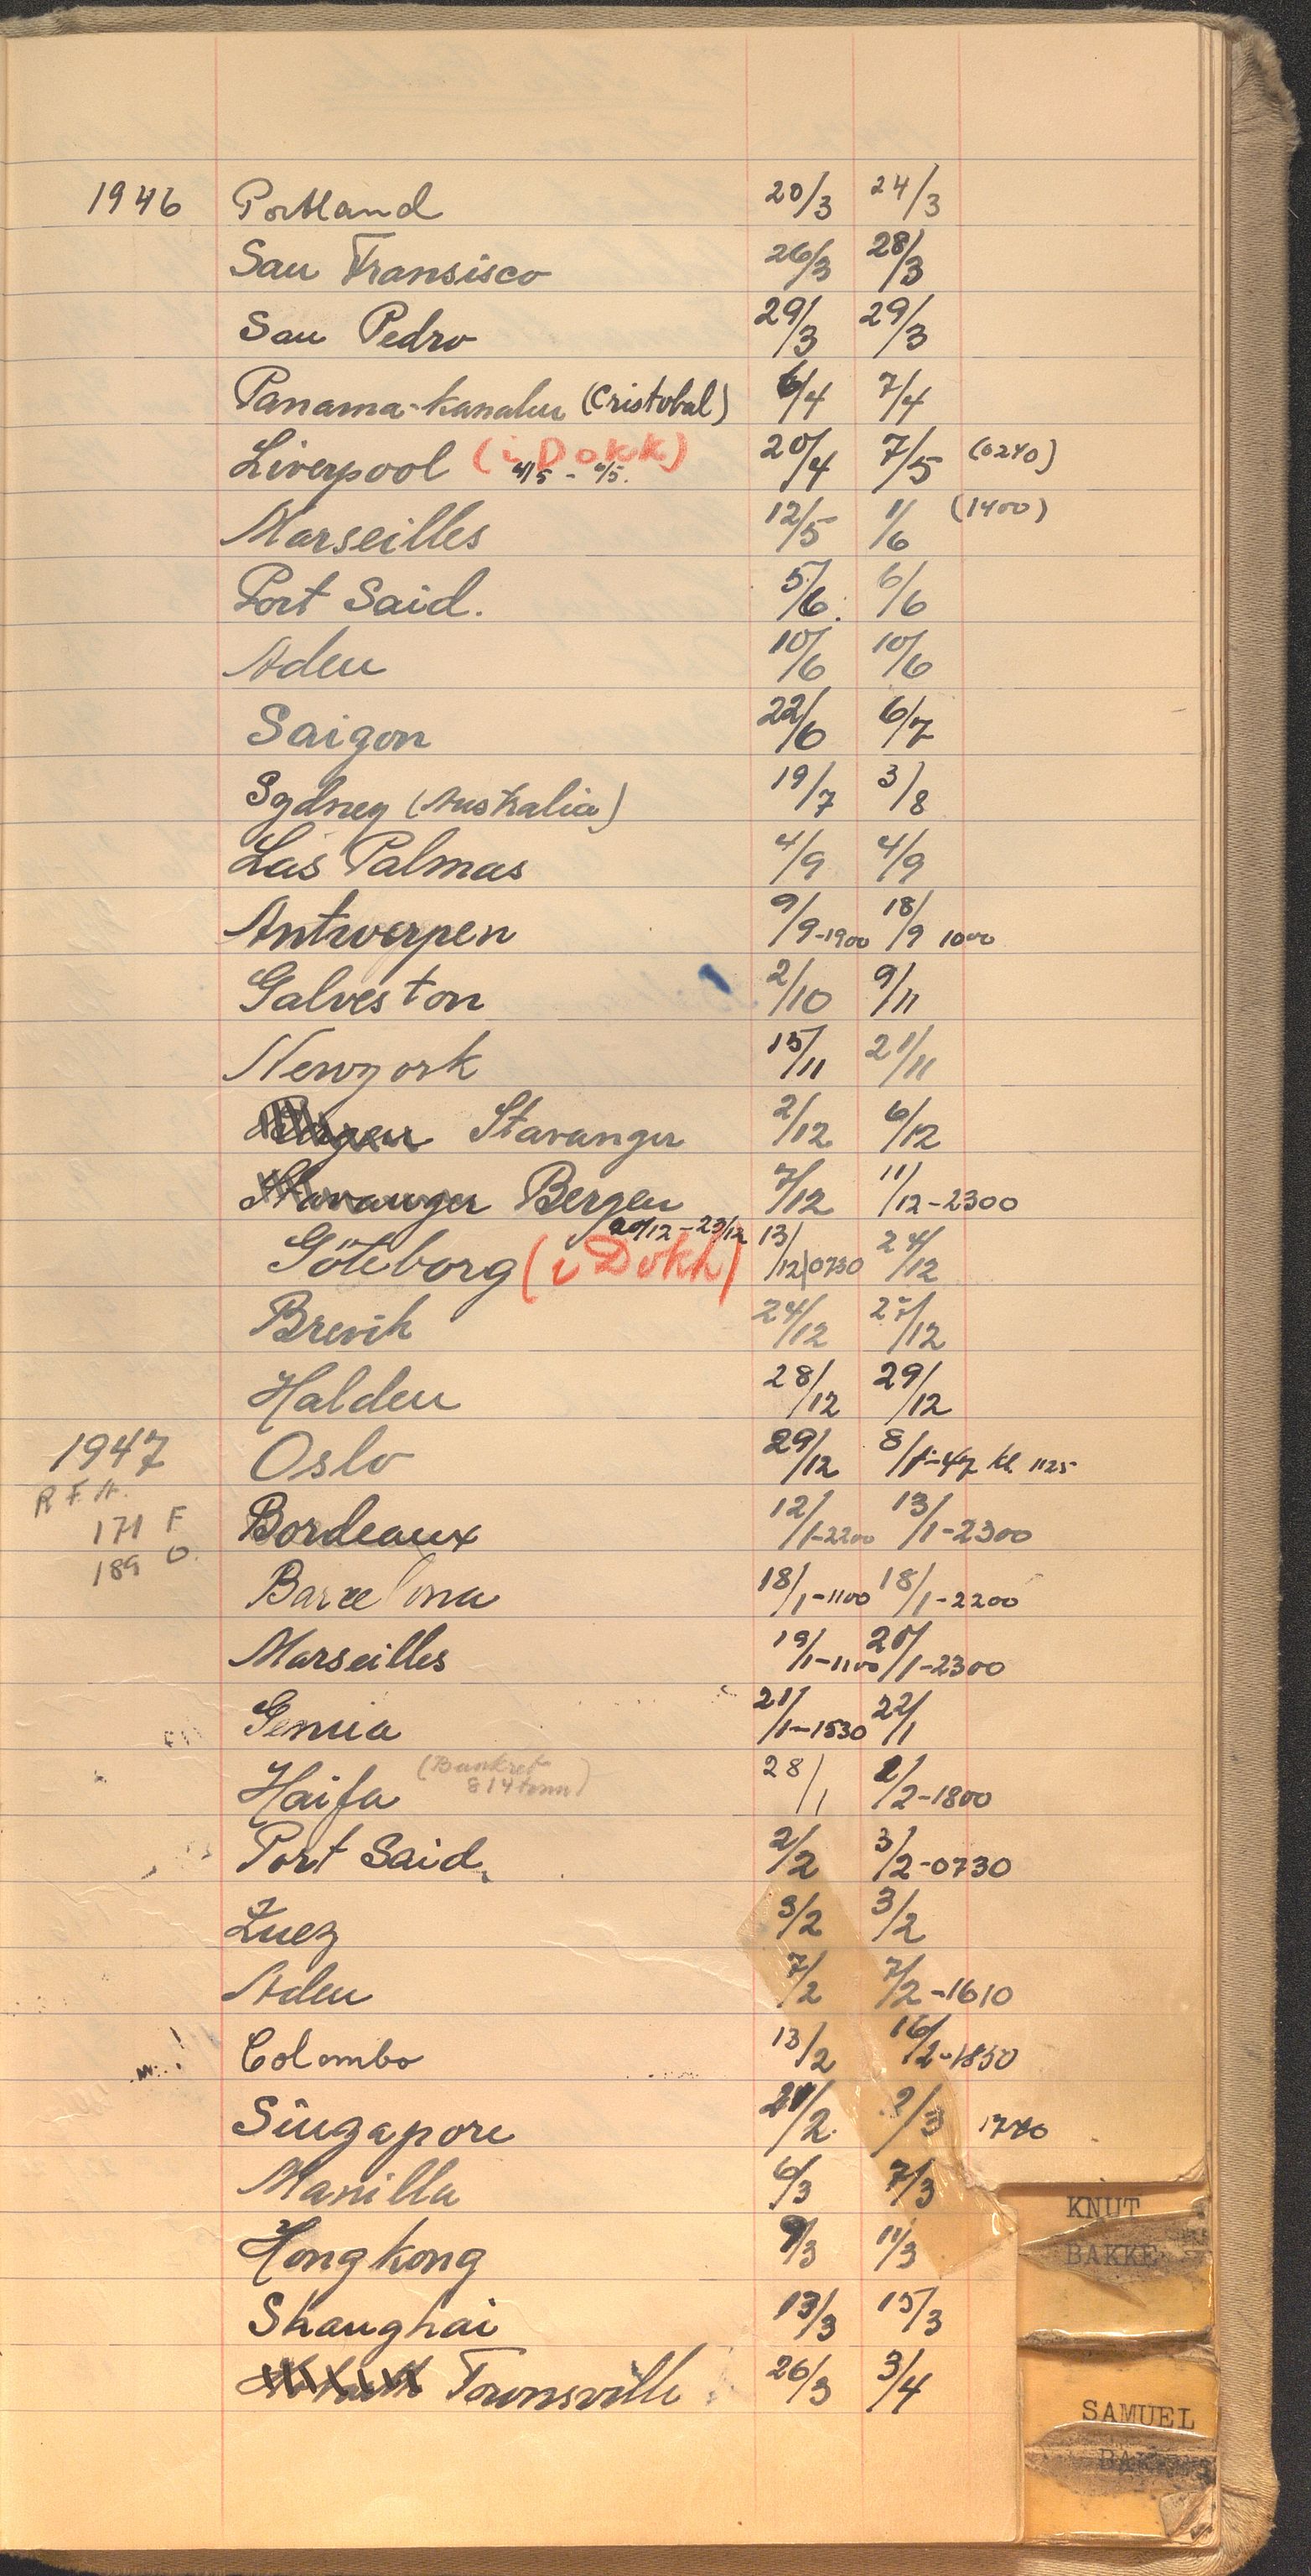 1946 Portland 20/3 24/3
San Fransisco 26/3 28/3
San Pedro 29/3 29/3
Panama-kanalen (Cristobal) 6/4 7/4
Liverpool (i Dokk) 20/4 7/5 (0240)
4/5 - 6/5.
Marseilles 12/5 1/6 (1400)
Port Said. 5/6. 6/6
Aden 10/6 10/6
Saigon 22/6 6/7
Sydney (Australia) 19/7 3/8
Las Palmas 4/9 4/9
Antwerpen 9/9-1900 18/9 1000
Galveston 2/10 9/11
Newyork 15/11 21/11
Bergen Stavanger 2/12 6/12
Stavanger Bergen 7/12 11/12-2300
20/12-23/12
Göteborg (i Dokk) 13/12 0730 24/12
Brevik 24/12 27/12
Halden 28/12 29/12
1947 Oslo 29/12 8/1-47 kl 1125
R.F.H.
171 F Bordeaux 12/1-2200 13/1-2300
189 O.
Barcelona 18/1-1100 18/1-2200
Marseilles 19/1-1100 20/1-2300
Genua 21/1-1530 22/1
(Bunkret
Haifa 814 tonn) 28/1 2/2-1800
Port Said. 2/2 3/2-0730
Zuez 3/2 3/2
Aden 7/2 7/2-1610
Colombo 13/2 16/2-1830
Singapore 21/2. 2/3 1740
Manilla 6/3 7/3
Hongkong 9/3 11/3
Shanghai 13/3 15/3
Townsville 26/3 3/4
KNUT
BAKKE
SAMUEL
BAKKE